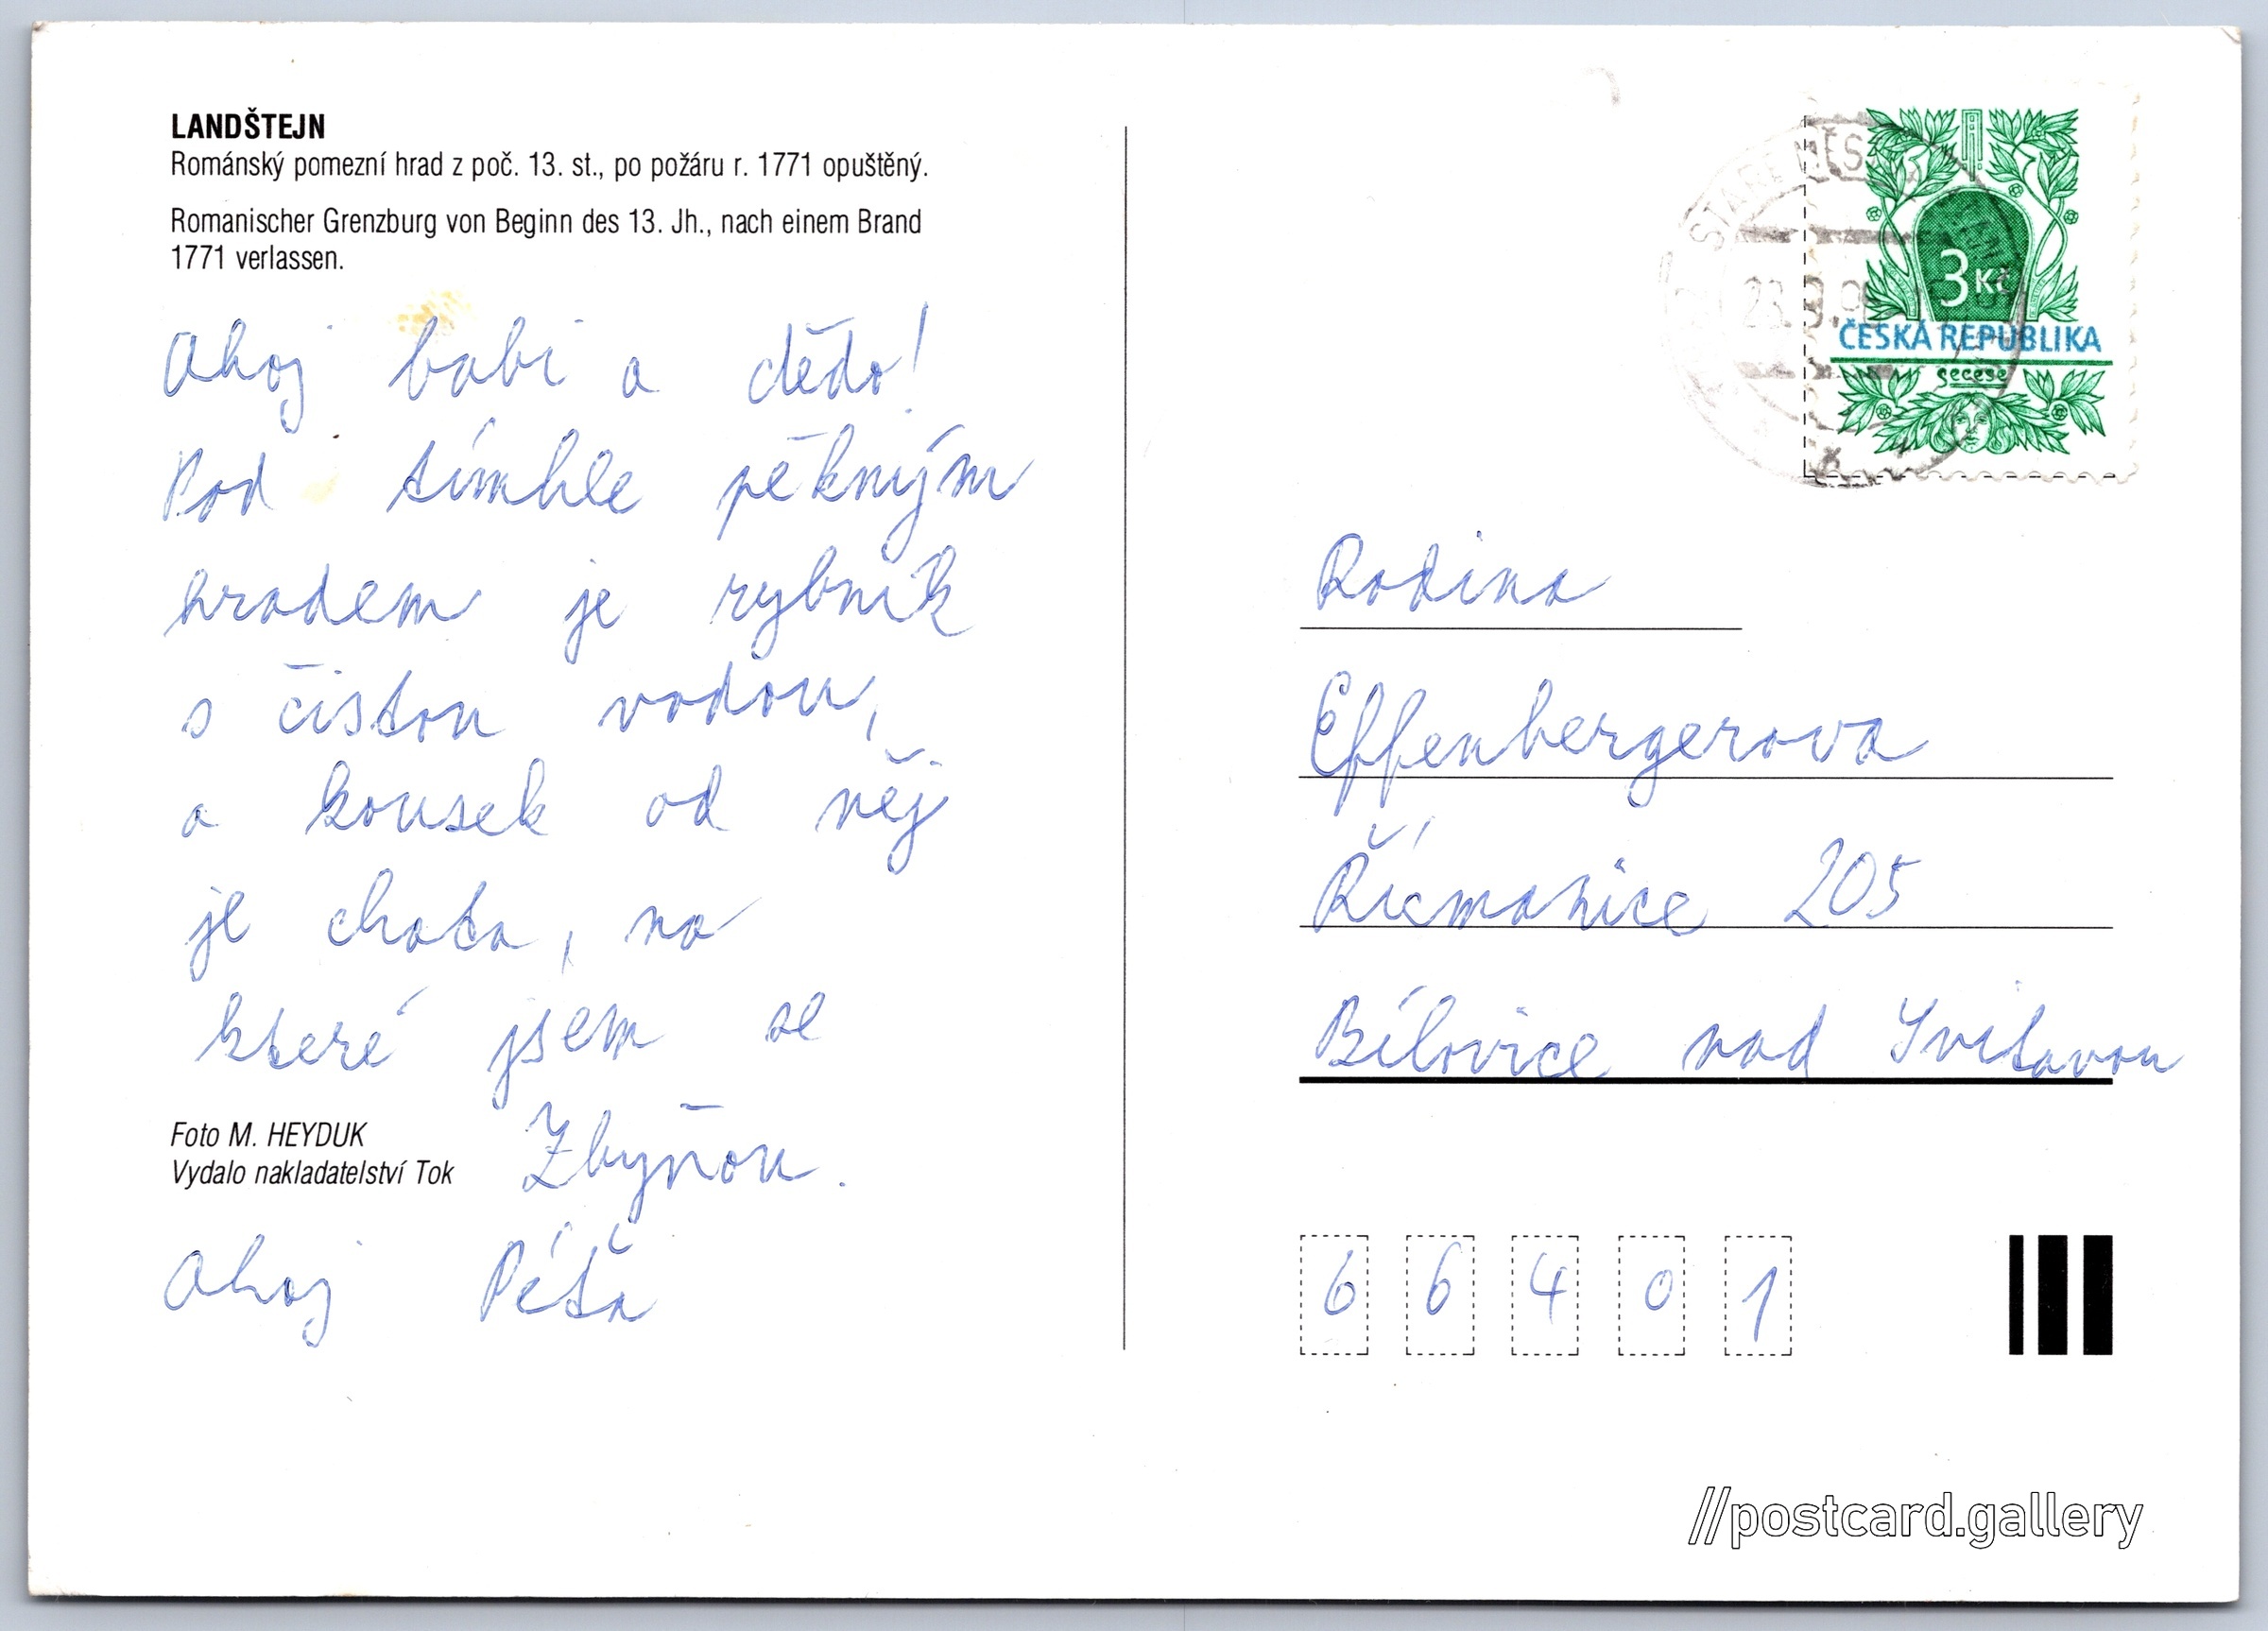 LANDŠTEJN
Románský pomezní hrad z poč. 13. st., po požáru r. 1771 opuštěný.
Romanischer Grenzburg von Beginn des 13. Jh., nach einem Brand
1771 verlassen.
Ahoj babi a dědo!
Pod tímhle pěkným
hradem je rybník
s čistou vodou,
a kousek od něj
je chata, na
které jsem se
Zbyňou.
Ahoj Péťa
Foto M. HEYDUK
Vydalo nakladatelství Tok
3 Kč
ČESKÁ REPUBLIKA
secese
Rodina
Effenbergerova
Řícmanice 205
Bílovice nad Svitavou
6 6 4 0 1
//postcard.gallery